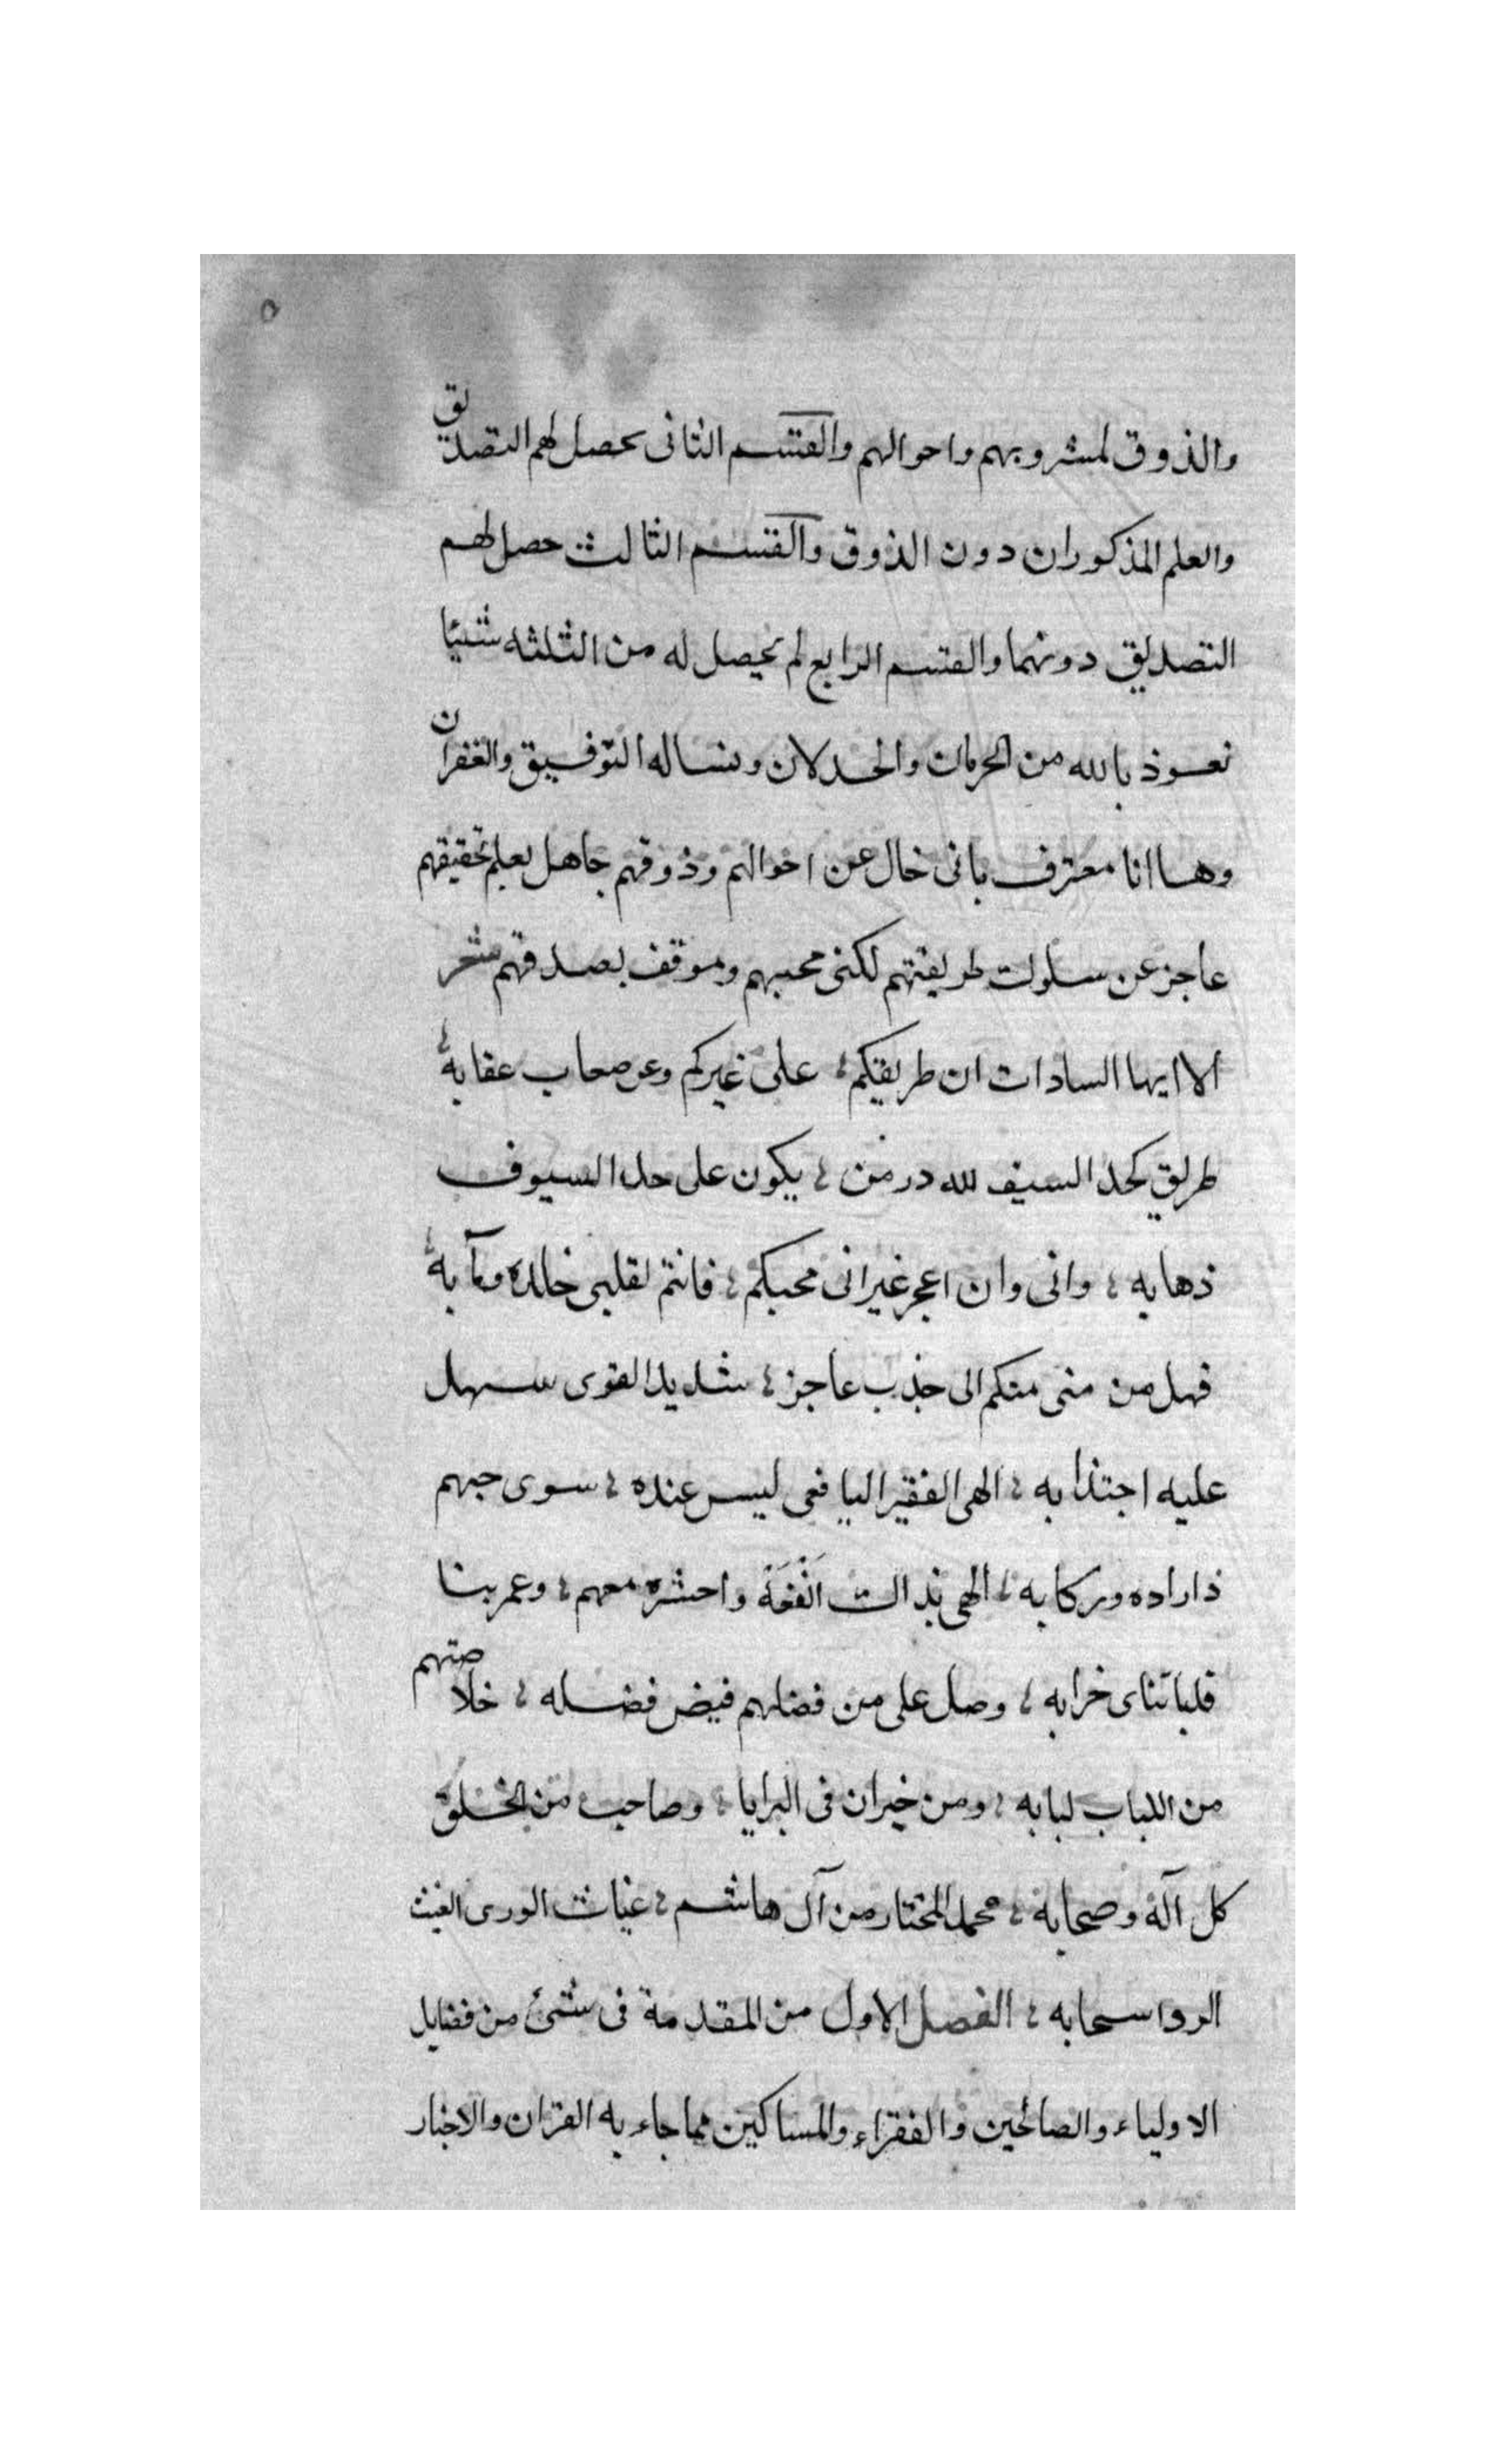 ٥
والذوق لمشروبهم واحوالهم والقسم الثانى حصل لهم التصديق
والعلم المذكوران دون الذوق والقسم الثالث حصل لهم
التصديق دونهما والقسم الرابع لم يحصل له من الثلثه شيئا
نعوذ بالله من الحرمان والخدلان ونساله التوفيق والغفران
وها انا معترف بانى خال عن احوالهم وذوقهم جاهل بعلم تحقيقهم
عاجز عن سلوك طريقتهم لكنى محبهم وموقف بصدقهم شعر
الا ايها السادات ان طريقكم على غيركم وعر صعاب عقابه
طريق كحد السيف لله در من يكون على حد السيوف
ذهابه وانى وان اعجز غير انى محبكم فانتم لقلبى خالده ومآبه
فهل من منى منكم الى جذب عاجز شديد القوى سهل
عليه اجتذابه الهى الفقير اليافعى ليس عنده سوى حبهم
ذا راده وركابه الهى بذاك انفعه واحشره معهم وعمر بنا
قلبا تناى خرابه وصل على من فضلهم فيض فضله خلاصتهم
من اللباب لبابه ومن خير ان فى البرايا وصاحب من الخلق
كل آله وصحابه محمد المختار من آل هاشم غياث الورى الغيث
الروا سحابه الفصل الاول من المقدمة فى شئ من فضايل
الاولياء والصالحين والفقراء والمساكين مما جاء به القران والاخبار